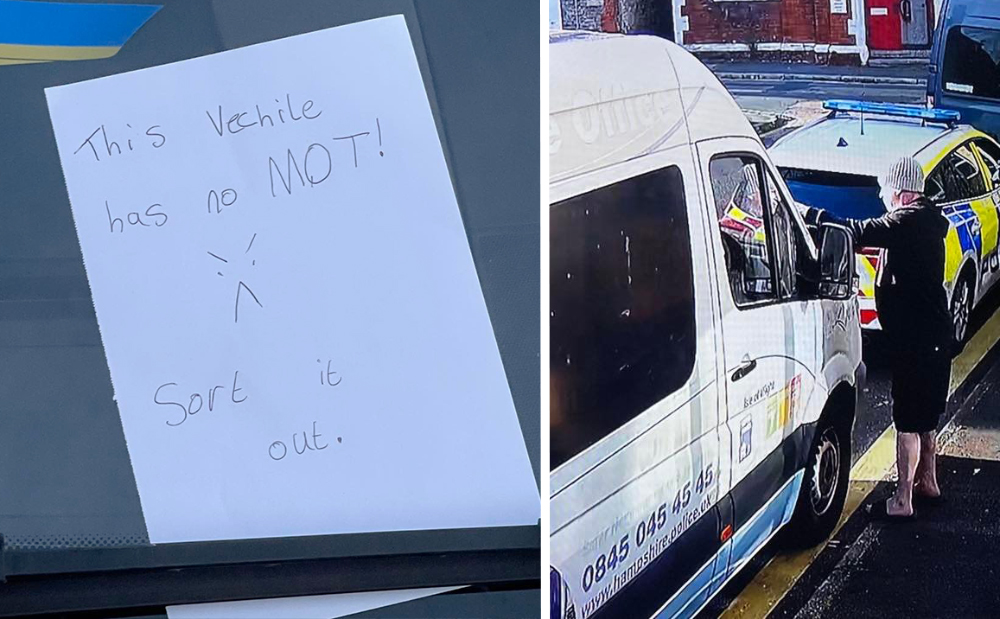 This Vechile
has no MOT!
Sort it
out.
Office
Isle of Wight
0845 045 45 45
www.hampshire.police.uk